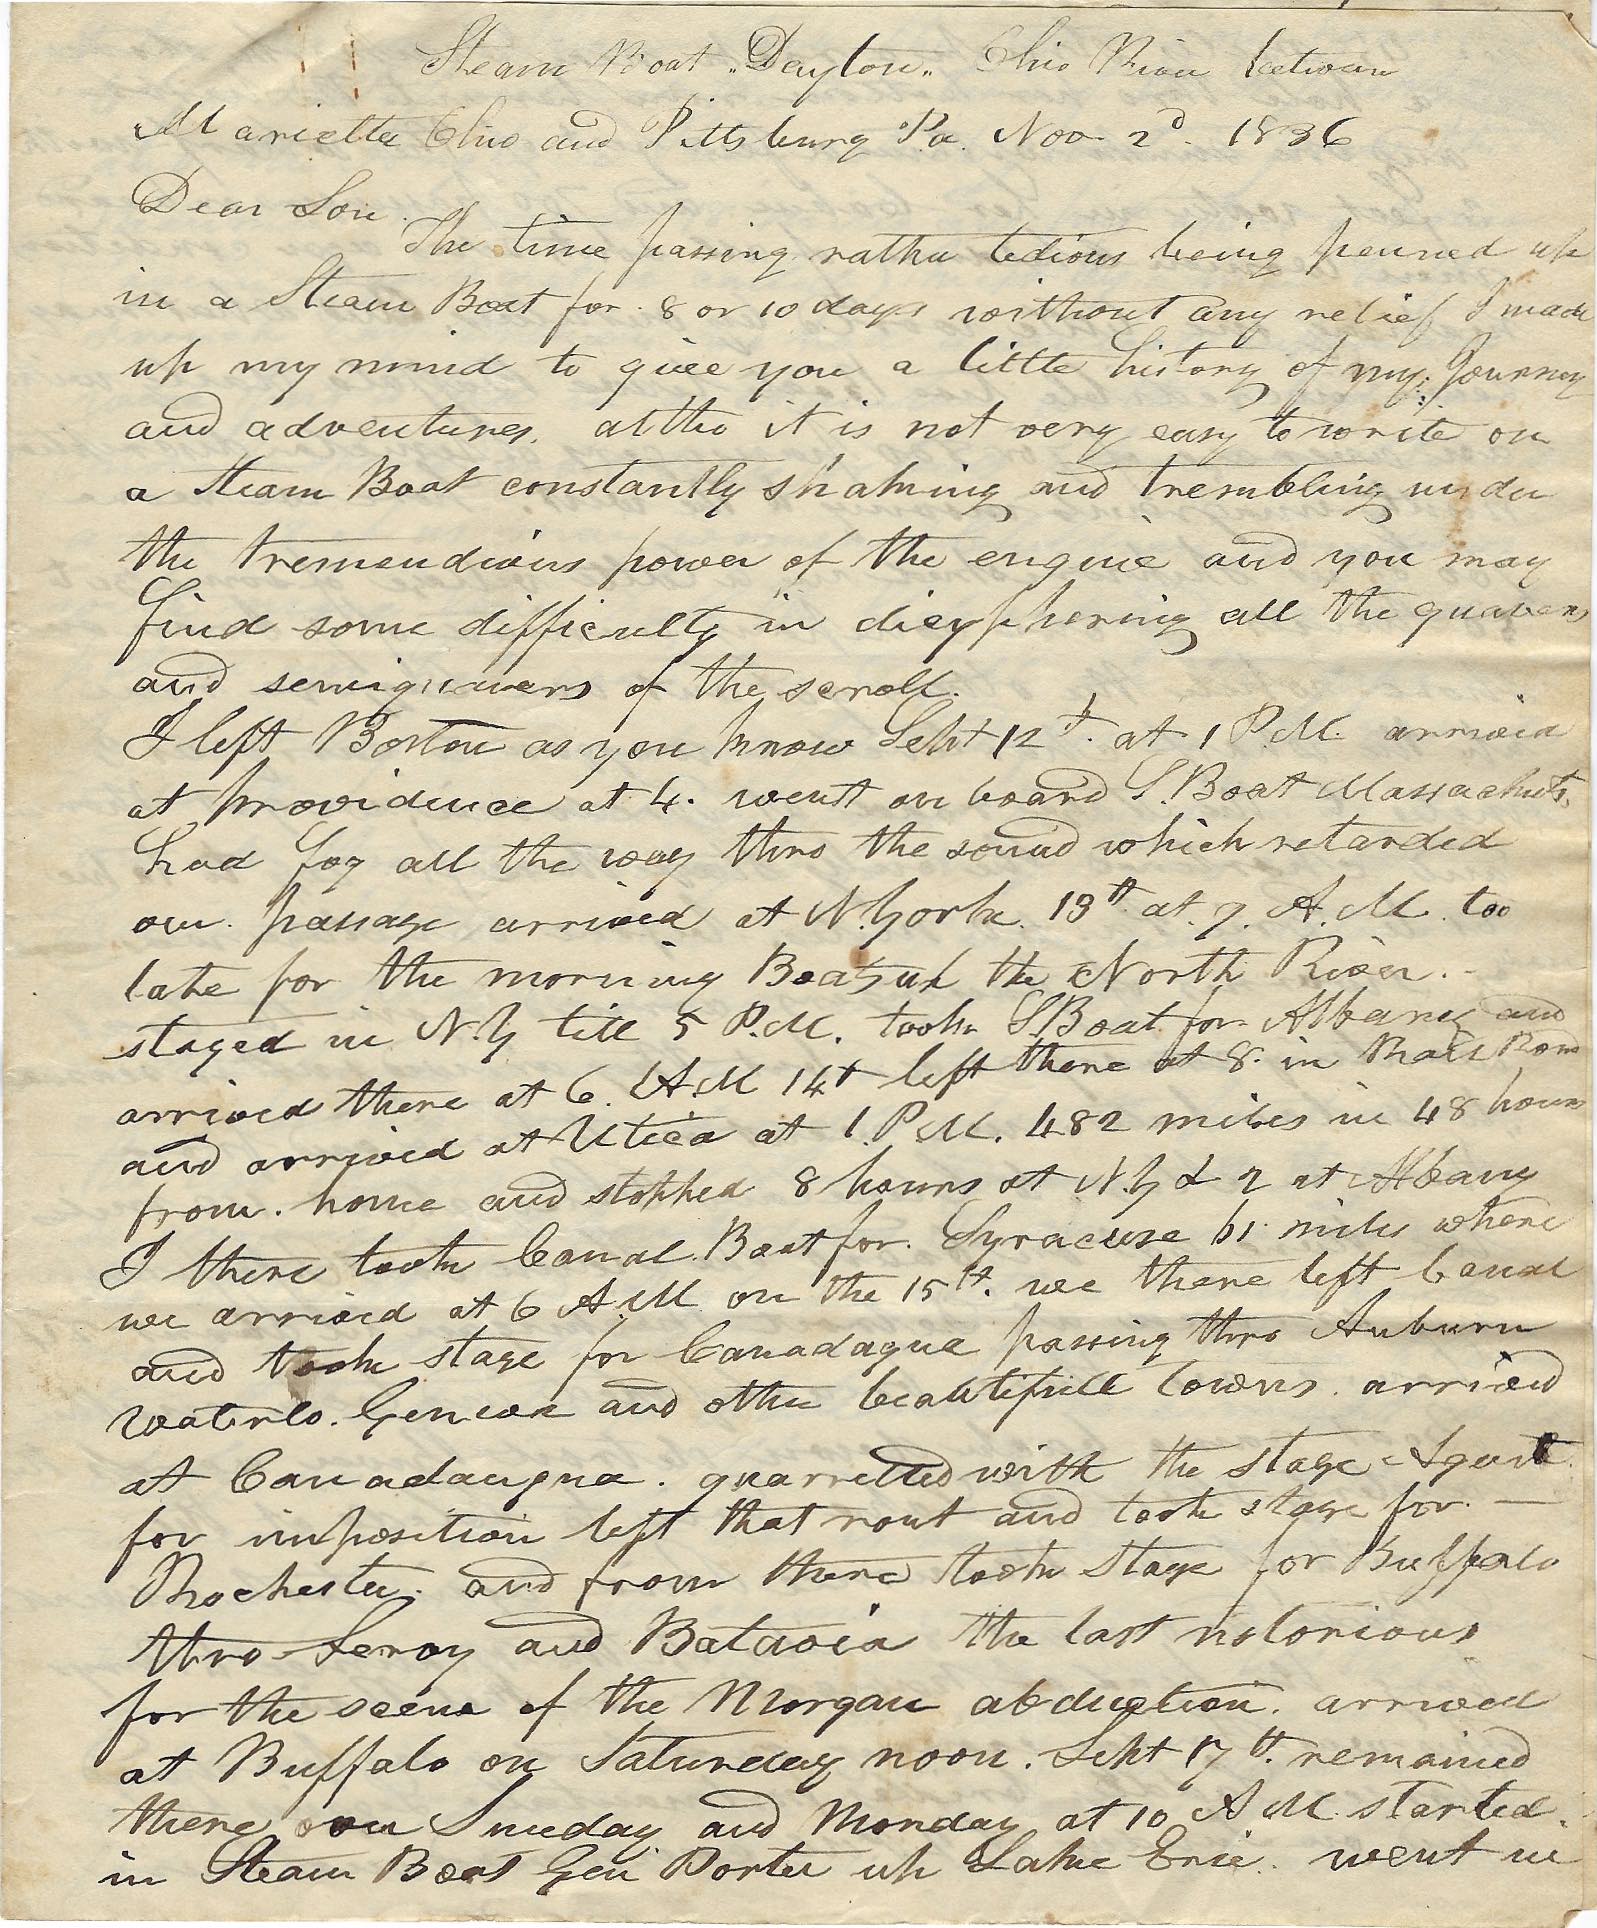 Steam Boat "Dayton" Ohio River between
Marietta Ohio and Pittsburg Pa. Nov. 2d. 1836
Dear Son.
The time passing rather tedious being penned up
in a Steam Boat for 8 or 10 days without any relief I made
up my mind to give you a little history of my Journey
and adventures. altho it is not very easy to write on
a Steam Boat constantly shaking and trembling under
the tremendious power of the engine and you may
find some difficulty in dicyphering all the quavers
and semiquavers of the scroll.
I left Boston as you know Sept 12t. at 1 P.M. arrived
at providence at 4. went on board S. Boat Massachusts.
had fog all the way thro the sound which retarded
our passage arrived at N. York 13th at 9. A.M. too
late for the morning Boats up the North River.
stayed in N.Y till 5 P.M. took S.Boat for Albany and
arrived there at 6. A.M 14t left there at 8. in Rail Road
and arrived at Utica at 1. P.M. 482 miles in 48 hours
from home and stopped 8 hours at N.Y & 2 at Albany
I there took Canal Boat for Syracuse 61 miles where
we arrived at 6 A.M on the 15th. we there left Canal
and took stage for Canadagua passing thro Auburn
Waterlo. Geneva and other beautifull towns. arrived
at Canadaugua. quarrelled with the stage Agent
for imposition left that rout and took stage for. —
Rochester. and from there took stage for Buffalo
thro Leroy and Batavia the last notorious
for the scene of the Morgan abduction. arrived
at Buffalo on Saturday noon. Sept 17th. remained
there over Sunday and Monday at 10 A M started.
in Steam Boat Gen Porter up Lake Erie. went in